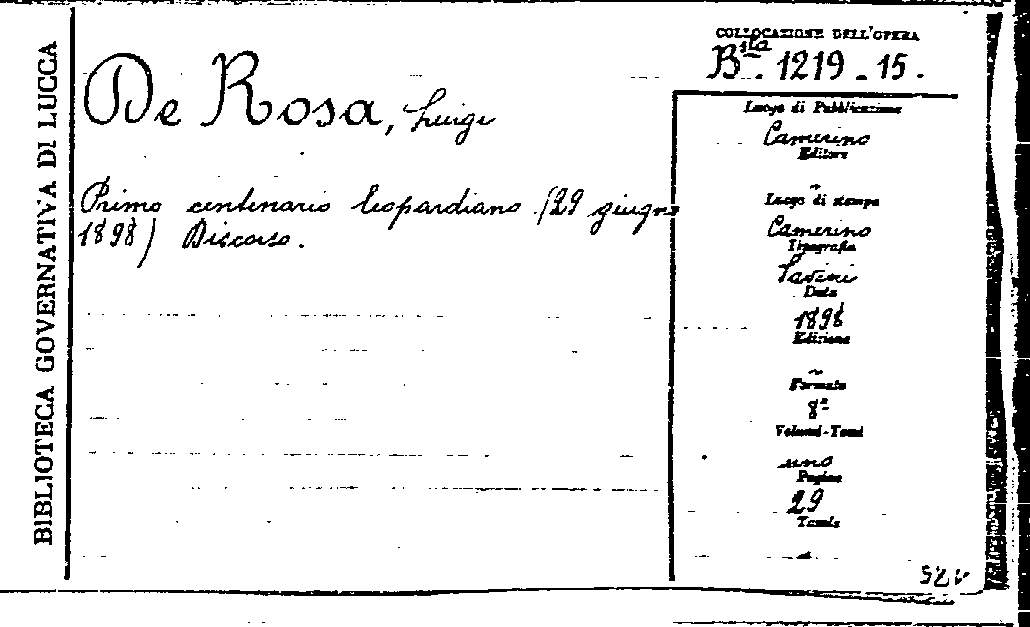 BIBLIOTECA GOVERNATIVA DI LUCCA
De Rosa, Luigi
Primo centenario leopardiano (29 giugno
1898) Discorso.
COLLOCAZIONE DELL'OPERA
Bsta. 1219 - 15.
Luogo di Pubblicazione
Camerino
Editore
~
Luogo di stampa
Camerino
Tipografia
Savini
Data
1898
Edizione
~
Formato
8º
Volumi-Tomi
uno
Pagine
29
Tavole
-